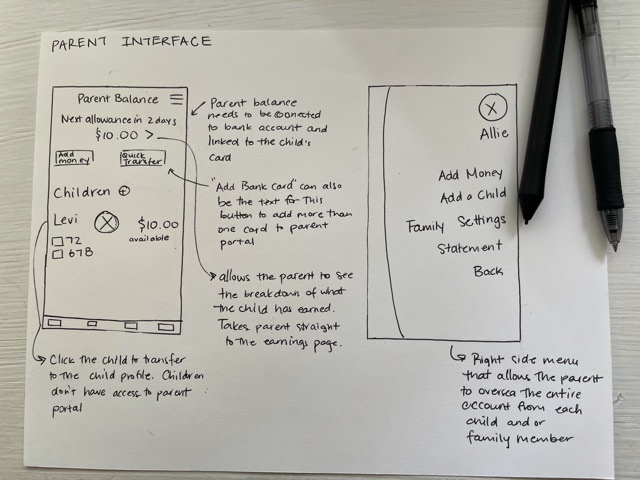 PARENT INTERFACE
Parent Balance
Next allowance in 2 days
$10.00 >
Add
money
Quick
Transfer
Children
Levi
$10.00
available
72
67B
Parent balance
needs to be connected
to bank account and
linked to the child's
card
"Add Bank Card" can also
be the text for This
button to add more than
one card to parent
portal
allows the parent to see
the breakdown of what
the child has earned.
Takes parent straight
to the earnings page.
Click the child to transfer
to the child profile. Children
don't have access to parent
portal
X
Allie
Add Money
Add a Child
Family Settings
Statement
Back
Right side menu
that allows The parent
to oversea The entire
account from each
child and or
family member